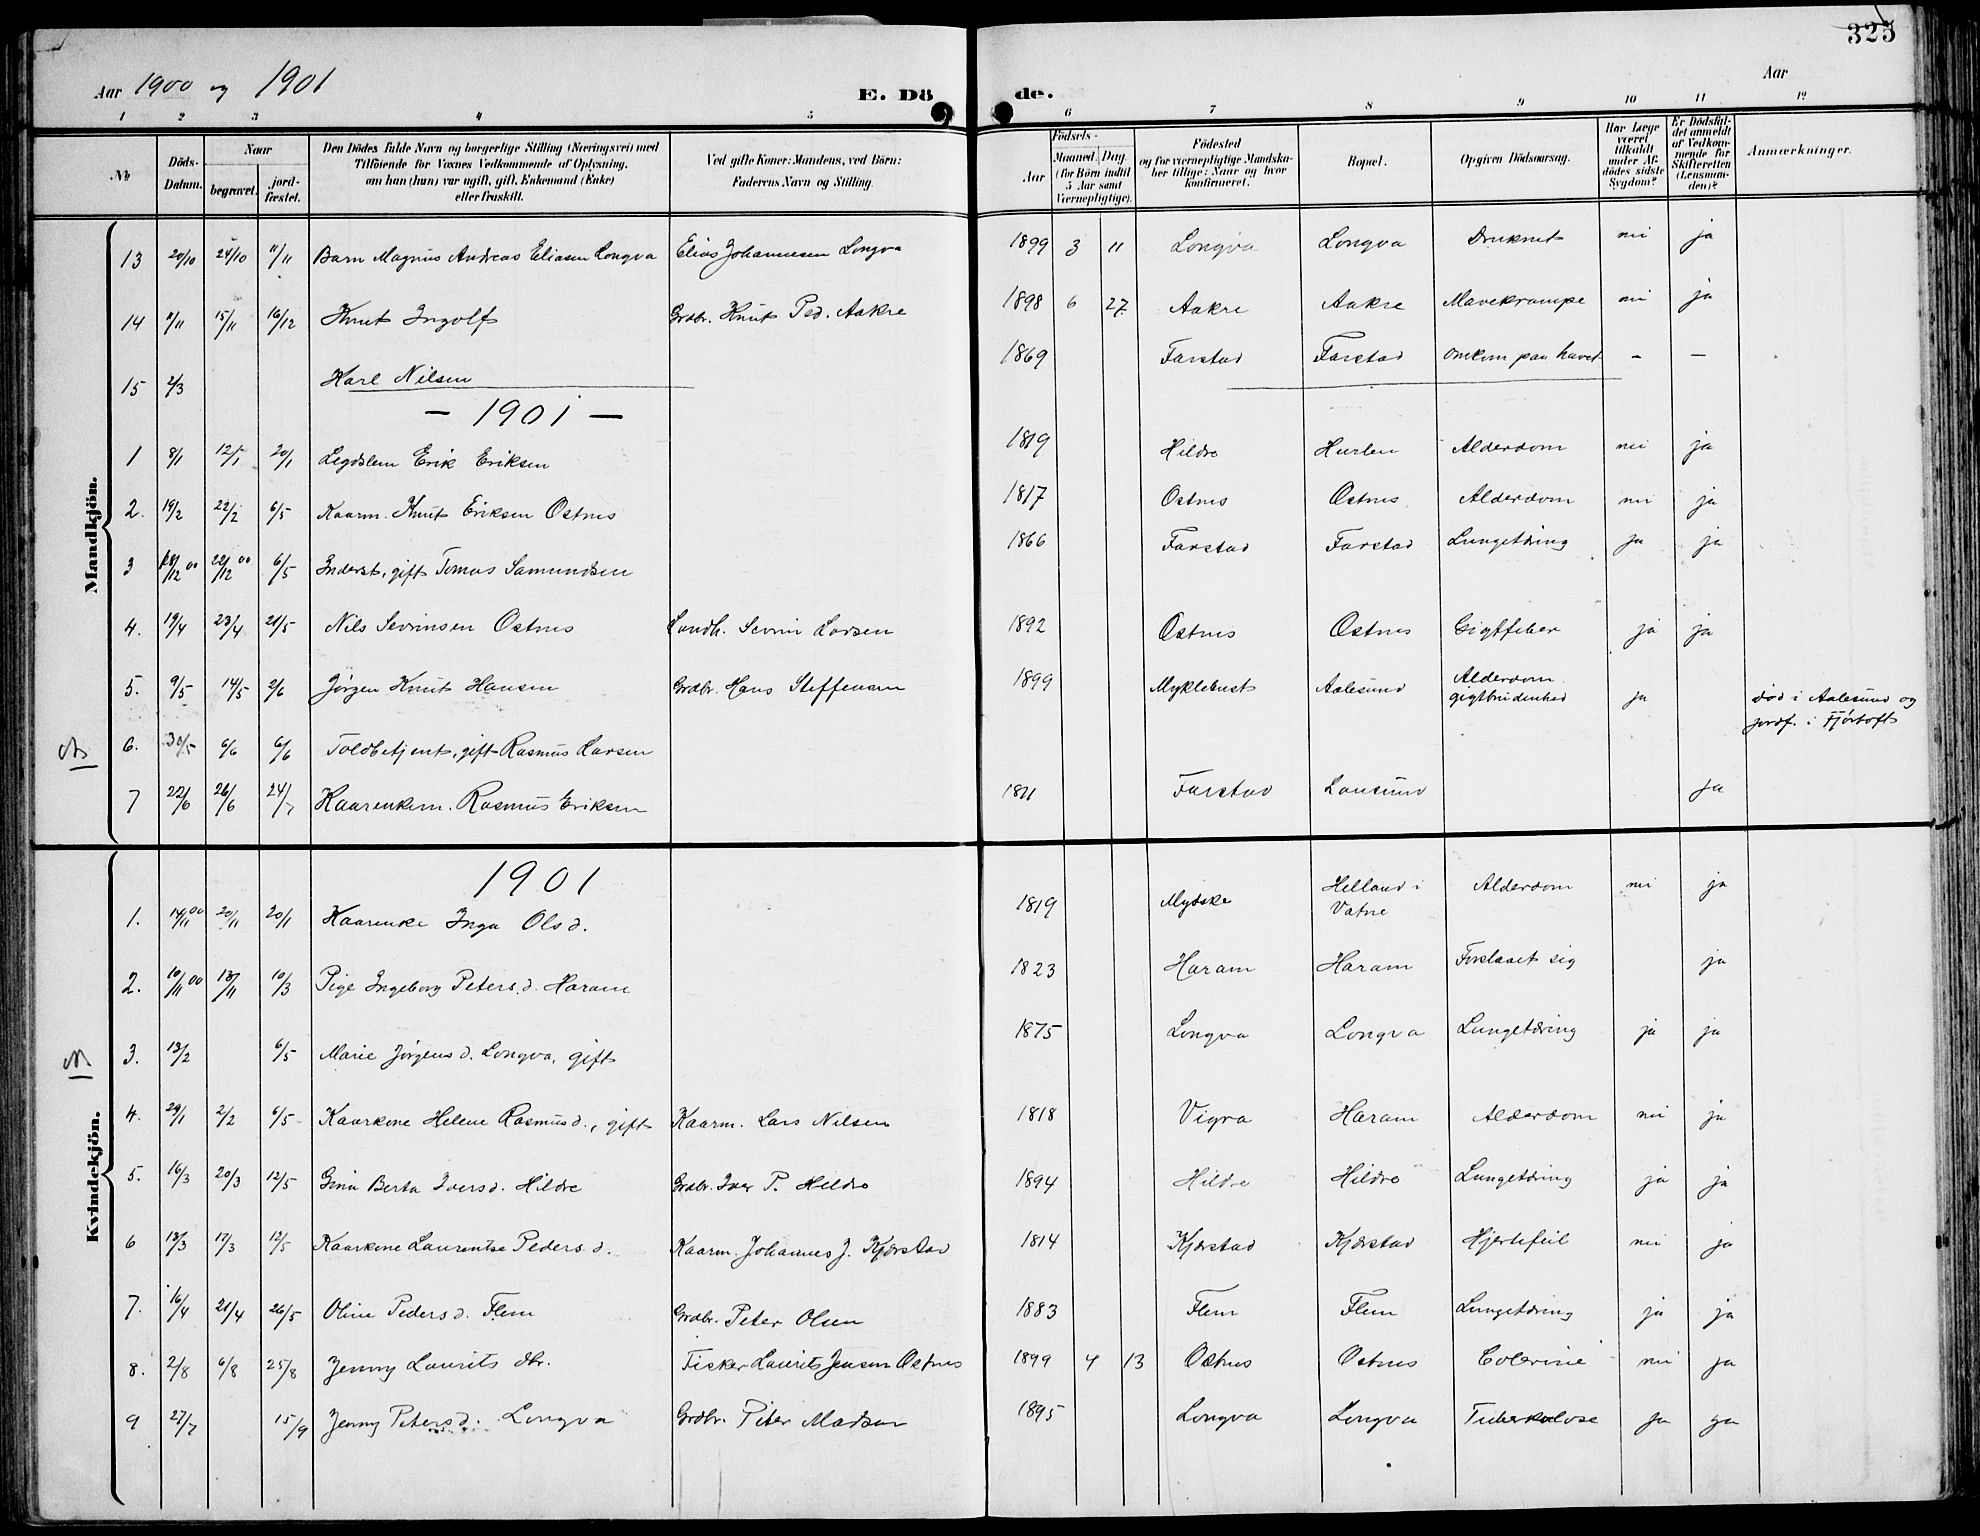 325
Aar 1900 og 1901 E. Dö de. Aar
1 2 3 4 5 6 7 8 9 10 11 12
No Döds-Datum. Naar begravet. jord-fæstet. Den Dödes fulde Navn og borgerlige Stilling (Næringsvei) med Tilföiende for Voxnes Vedkommende af Oplysning, om han (hun) var ugift, gift, Enkemand (Enke) eller fraskilt. Ved gifte Koner: Mandens, ved Börn: Faderens Navn og Stilling. Födsels- Aar Maaned. Dag (for Börn indtil 5 Aar samt Værnepligtige). Födested og for værnepligtige Mandska-ber tillige: Naar og hvor konfirmeret. Bopæl. Opgiven Dödsaarsag. Har Læge været tilkaldt under Af-dödes sidste Sygdom? Er Dödsfal-det anmeldt af Vedkom-mende for Skifteretten (Lensman-den)? Anmærkninger.
Mandkjön.
13 20/10 24/10 11/11 Barn Magnus Andreas Eliasen Longva Elias Johannesen Longva 1899 3 11 Longva Longva Druknet nei ja
14 11/11 15/11 16/12 Knut Ingolf Grdbr. Knut Ped. Aakre 1898 6 27 Aakre Aakre Mavekrampe nei ja
15 2/3 Karl Nilsen 1869 Farstad Farstad omkom paa havet - -
- 1901 -
1 8/1 12/1 20/1 Legdslem Erik Eriksen 1819 Hildre Hurlen Alderdom nei ja
2. 19/2 22/2 6/5 Kaarm. Knut Eriksen Ostnes 1817 Ostnes Ostnes Alderdom nei ja
3 18/12 00 22/12 00 6/5 Inderst, gift Tomas Samundsen 1866 Farstad Farstad Lungetæring ja ja
4. 19/4 23/4 21/5 Nils Sevrinsen Ostnes Landh. Sevrin Larsen 1892 Ostnes Ostnes Gigtfeber ja ja
5. 9/5 14/5 2/6 Jørgen Knut Hansen Grdbr. Hans Steffensen 1899 Myklebust Aalesund Alderdom. gigtbrudenhed ja død i Aalesund og jordf. i Fjørtoft
6. 30/5 6/6 6/6 Toldbetjent, gift Rasmus Larsen
7 22/6 26/6 24/7 Kaarenkem. Rasmus Eriksen 1811 Farstad Lausund ja
Kvindekjön.
1901
1. 14/11 00 20/11 20/1 Kaarenke Inga Olsd. 1819 Mydske Helland i Vatne Alderdom nei ja
2. 10/11 00 13/11 10/3 Pige Ingeborg Petersd. Haram 1823 Haram Haram Forslaaet sig ja
3. 13/2 6/5 Marie Jørgensd. Longva, gift 1875 Longva Longva Lungetæring ja ja
4. 29/1 2/2 6/5 Kaarkone Helene Rasmusd., gift Kaarm. Lars Nilsen 1818 Vigra Haram Alderdom nei ja
5. 16/3 20/3 12/5 Gina Berta Iversd. Hildre Grdbr. Iver P. Hildre 1894 Hildre Hildre Lungetæring ja ja
6 13/3 17/3 12/5 Kaarkone Laurentse Pedersd. Kaarm. Johannes J. Kjærstad 1814 Kjærstad Kjærstad Hjertefeil nei ja
7. 16/4 21/4 26/5 Oline Pedersd. Flem Grdbr. Peter Olsen 1883 Flem Flem Lungetæring ja ja
8. 2/8 6/8 25/8 Jenny Laurits dtr. Fisker Laurits Jensen Ostnes 1899 4 13 Ostnes Ostnes Colerine nei ja
9 27/7 15/9 Jenny Petersd. Longva Grdbr. Peter Madsen 1895 Longva Longva Tuberkulose ja ja